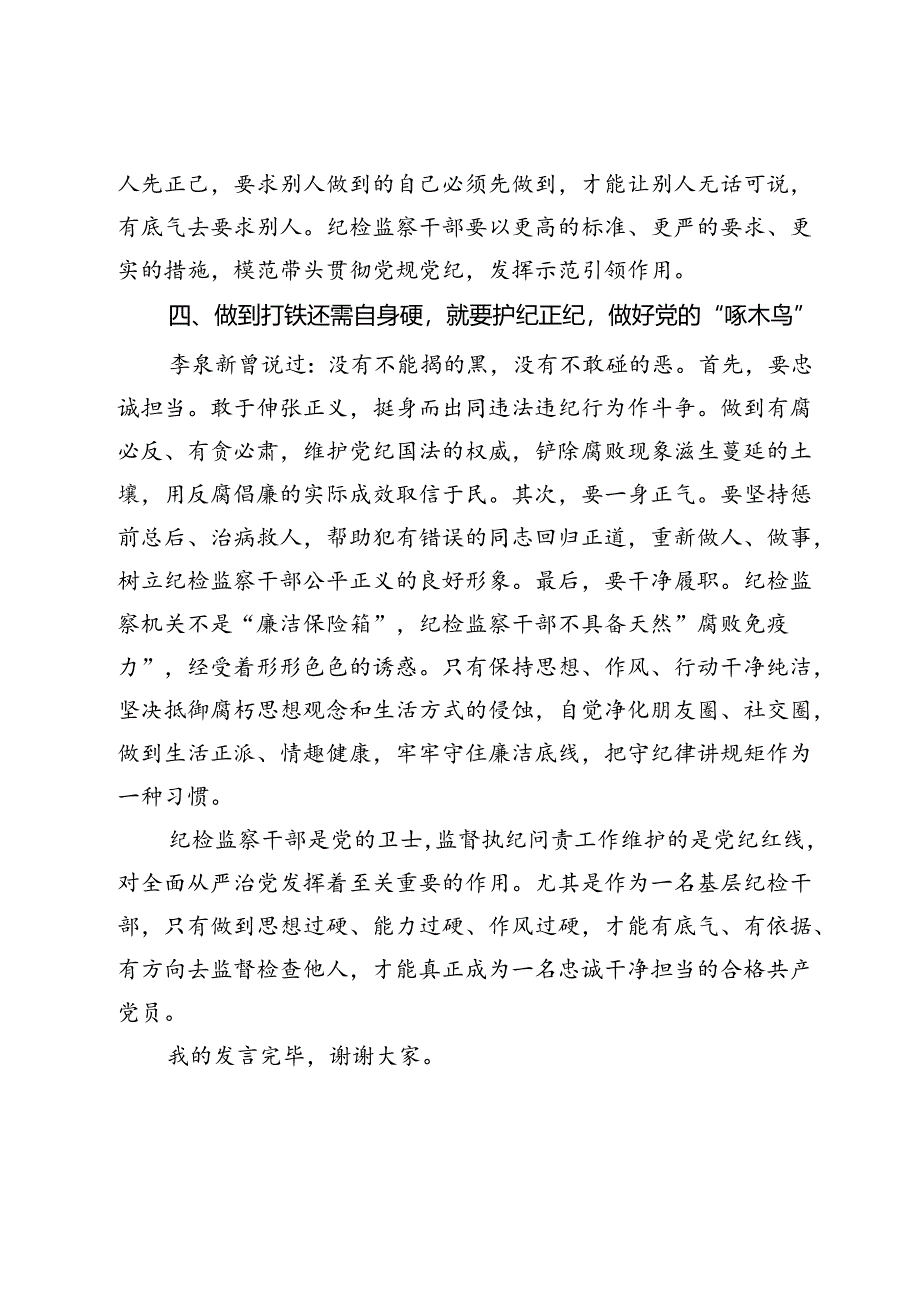 人先正己，要求别人做到的自己必须先做到，才能让别人无话可说，
有底气去要求别人。纪检监察干部要以更高的标准、更严的要求、更
实的措施，模范带头贯彻党规党纪，发挥示范引领作用。
四、做到打铁还需自身硬，就要护纪正纪，做好党的“啄木鸟”
李泉新曾说过：没有不能揭的黑，没有不敢碰的恶。首先，要忠
诚担当。敢于伸张正义，挺身而出同违法违纪行为作斗争。做到有腐
必反、有贪必肃，维护党纪国法的权威，铲除腐败现象滋生蔓延的土
壤，用反腐倡廉的实际成效取信于民。其次，要一身正气。要坚持惩
前总后、治病救人，帮助犯有错误的同志回归正道，重新做人、做事，
树立纪检监察干部公平正义的良好形象。最后，要干净履职。纪检监
察机关不是“廉洁保险箱”，纪检监察干部不具备天然”腐败免疫
力”，经受着形形色色的诱惑。只有保持思想、作风、行动干净纯洁，
坚决抵御腐朽思想观念和生活方式的侵蚀，自觉净化朋友圈、社交圈，
做到生活正派、情趣健康，牢牢守住廉洁底线，把守纪律讲规矩作为
一种习惯。
纪检监察干部是党的卫士,监督执纪问责工作维护的是党纪红线，
对全面从严治党发挥着至关重要的作用。尤其是作为一名基层纪检干
部，只有做到思想过硬、能力过硬、作风过硬，才能有底气、有依据、
有方向去监督检查他人，才能真正成为一名忠诚干净担当的合格共产
党员。
我的发言完毕，谢谢大家。